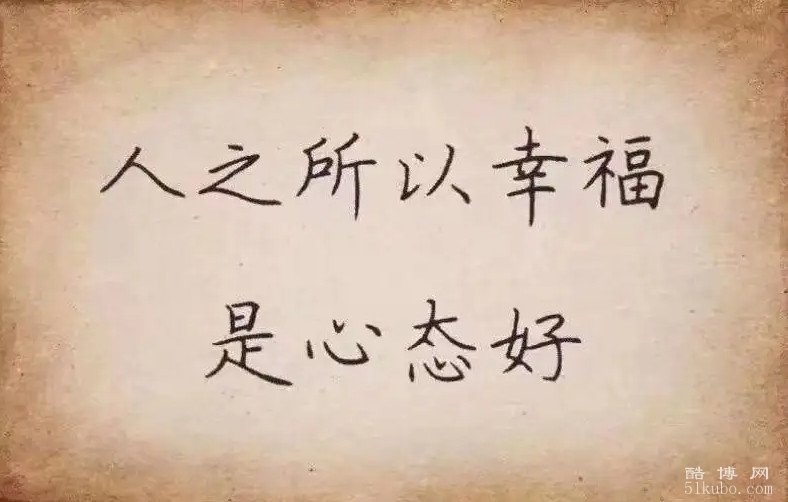 人之所以幸福
是心态好
酷博网
51kubo.com